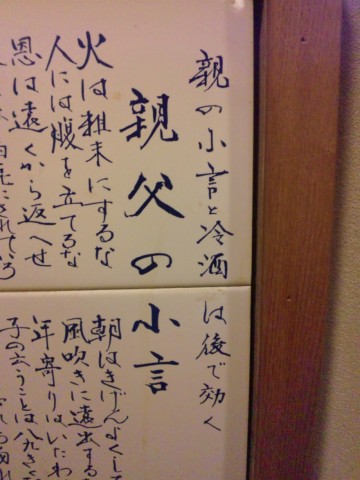 親の小言と冷酒は後で効く
親父の小言
火は粗末にするな
人には腹を立てるな
恩は遠くから返へせ
にされていろ
朝はきげんよくし
風吹きに遠出する
年寄りはいたわ
子の云うことは八九き